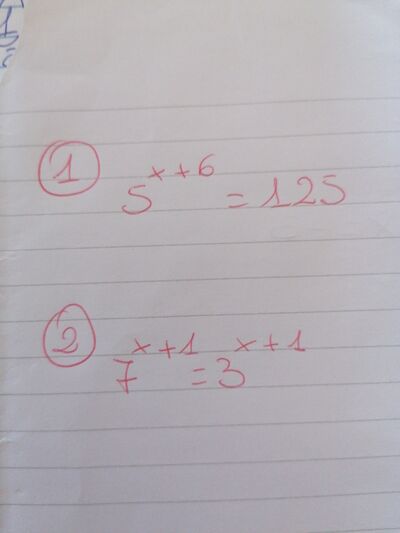 1 5^{x+6} = 125
2 7^{x+1} = 3^{x+1}